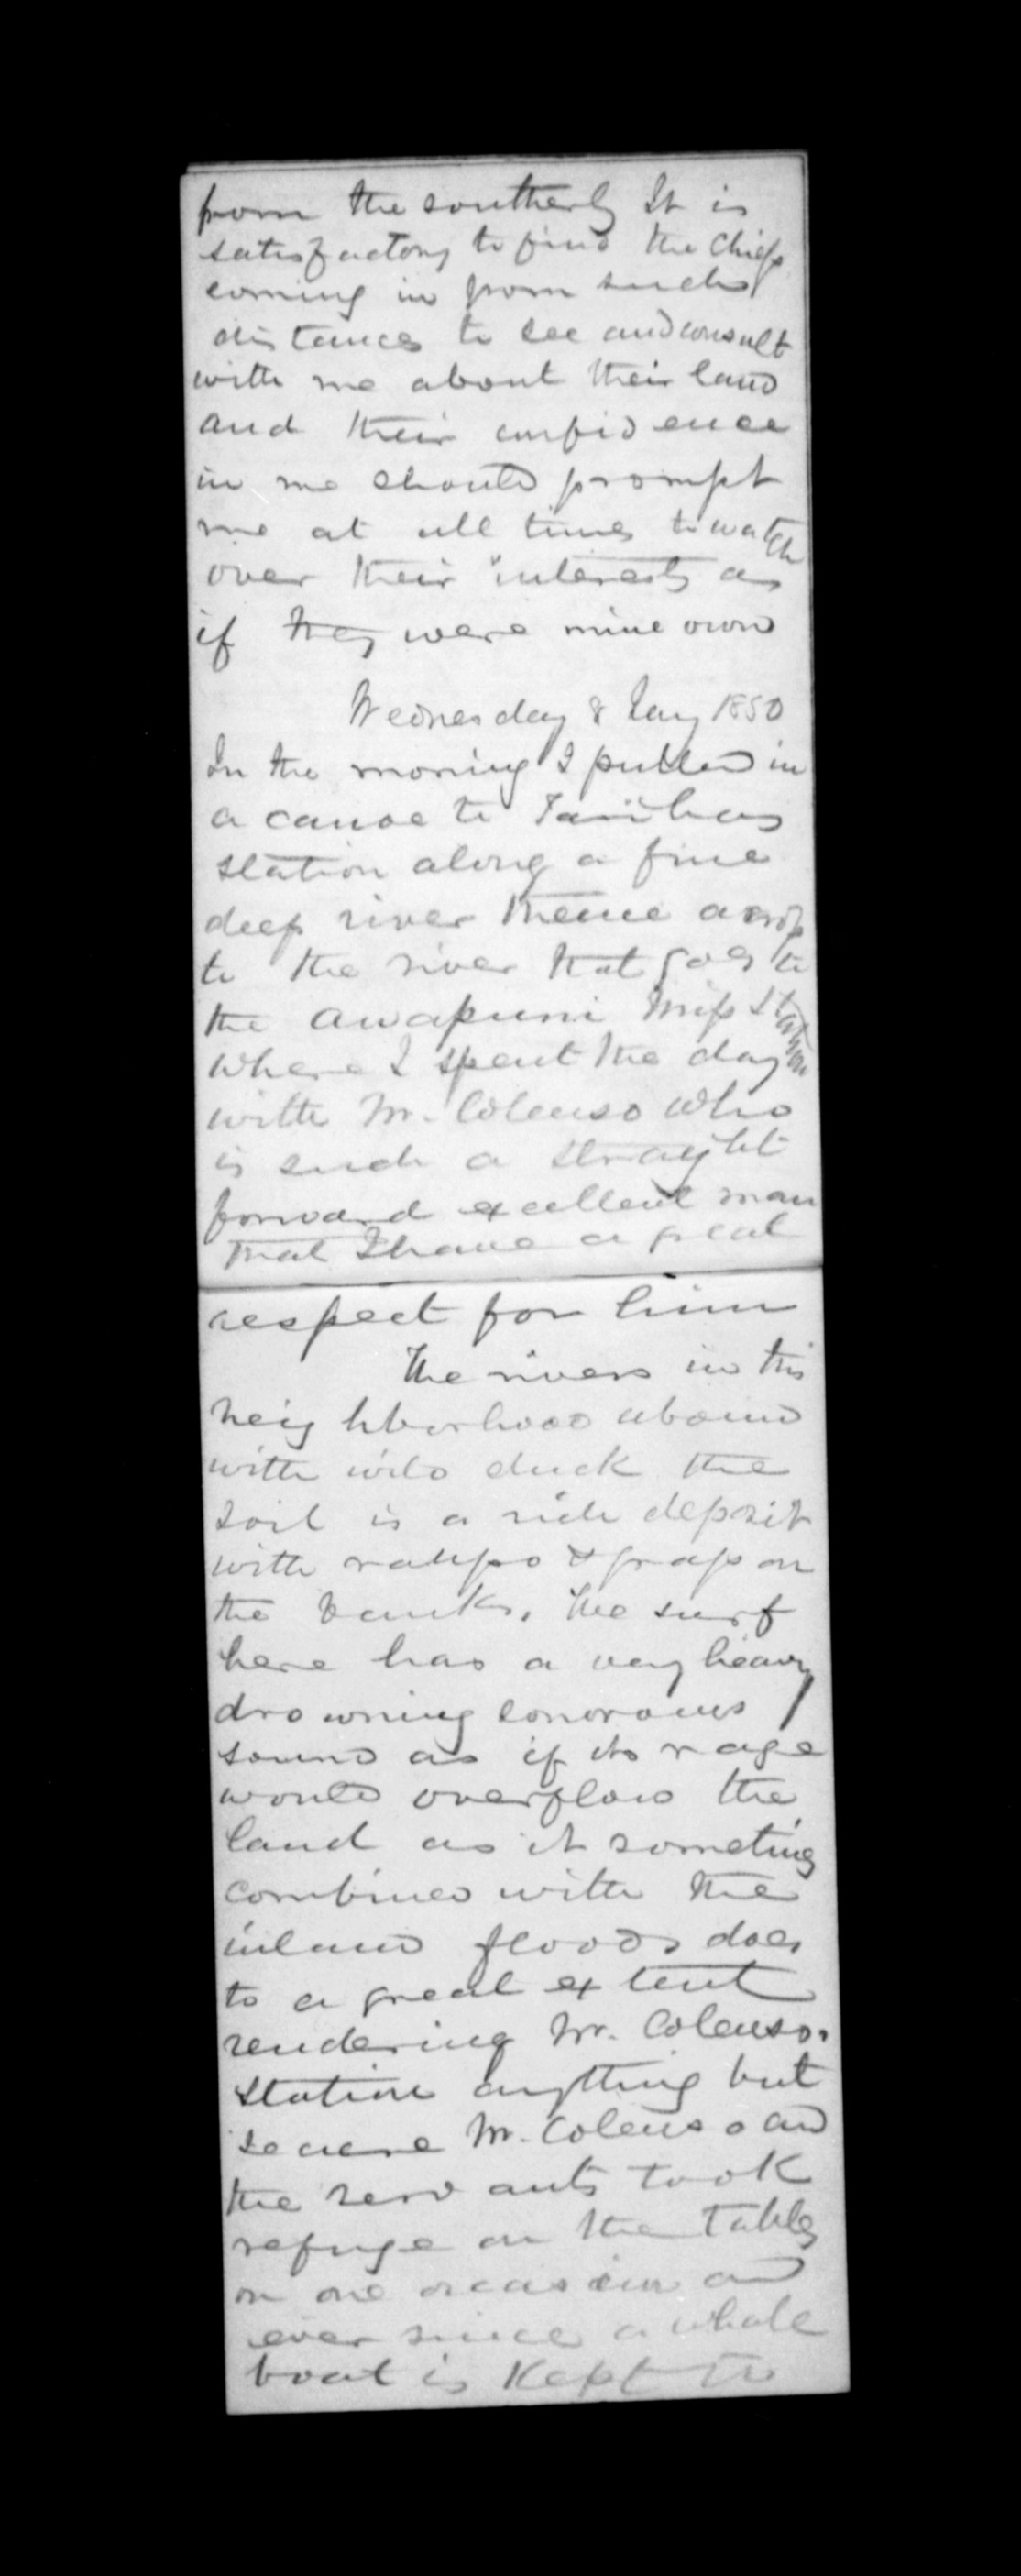 from the southerly It is
satisfactory to find the chiefs
coming in from such
distances to see and consult
with me about their land
and their confidence
in me should prompt
me at all times to watch
over their interests as
if they were mine own
Wednesday 8 Jany 1850
In the morning I pulled in
a canoe to
station along a fine
deep river thence across
to the river that goes to
the Awapuni Miss Station
where I spent the day
with Mr. Colenso who
is such a straight
forward excellent man
that I have a great
respect for him
The rivers in this
neighborhood abound
with wild duck the
soil is a rich deposit
with raupo & grass on
the banks. The surf
here has a very heavy
drowning sonorous
sound as if its rage
would overflow the
land as it sometimes
combined with the
inland floods does
to a great extent
rendering Mr. Colenso's
station anything but
secure Mr. Colenso and
the servants took
refuge on the tables
on one occasion and
ever since a whale
boat is kept to